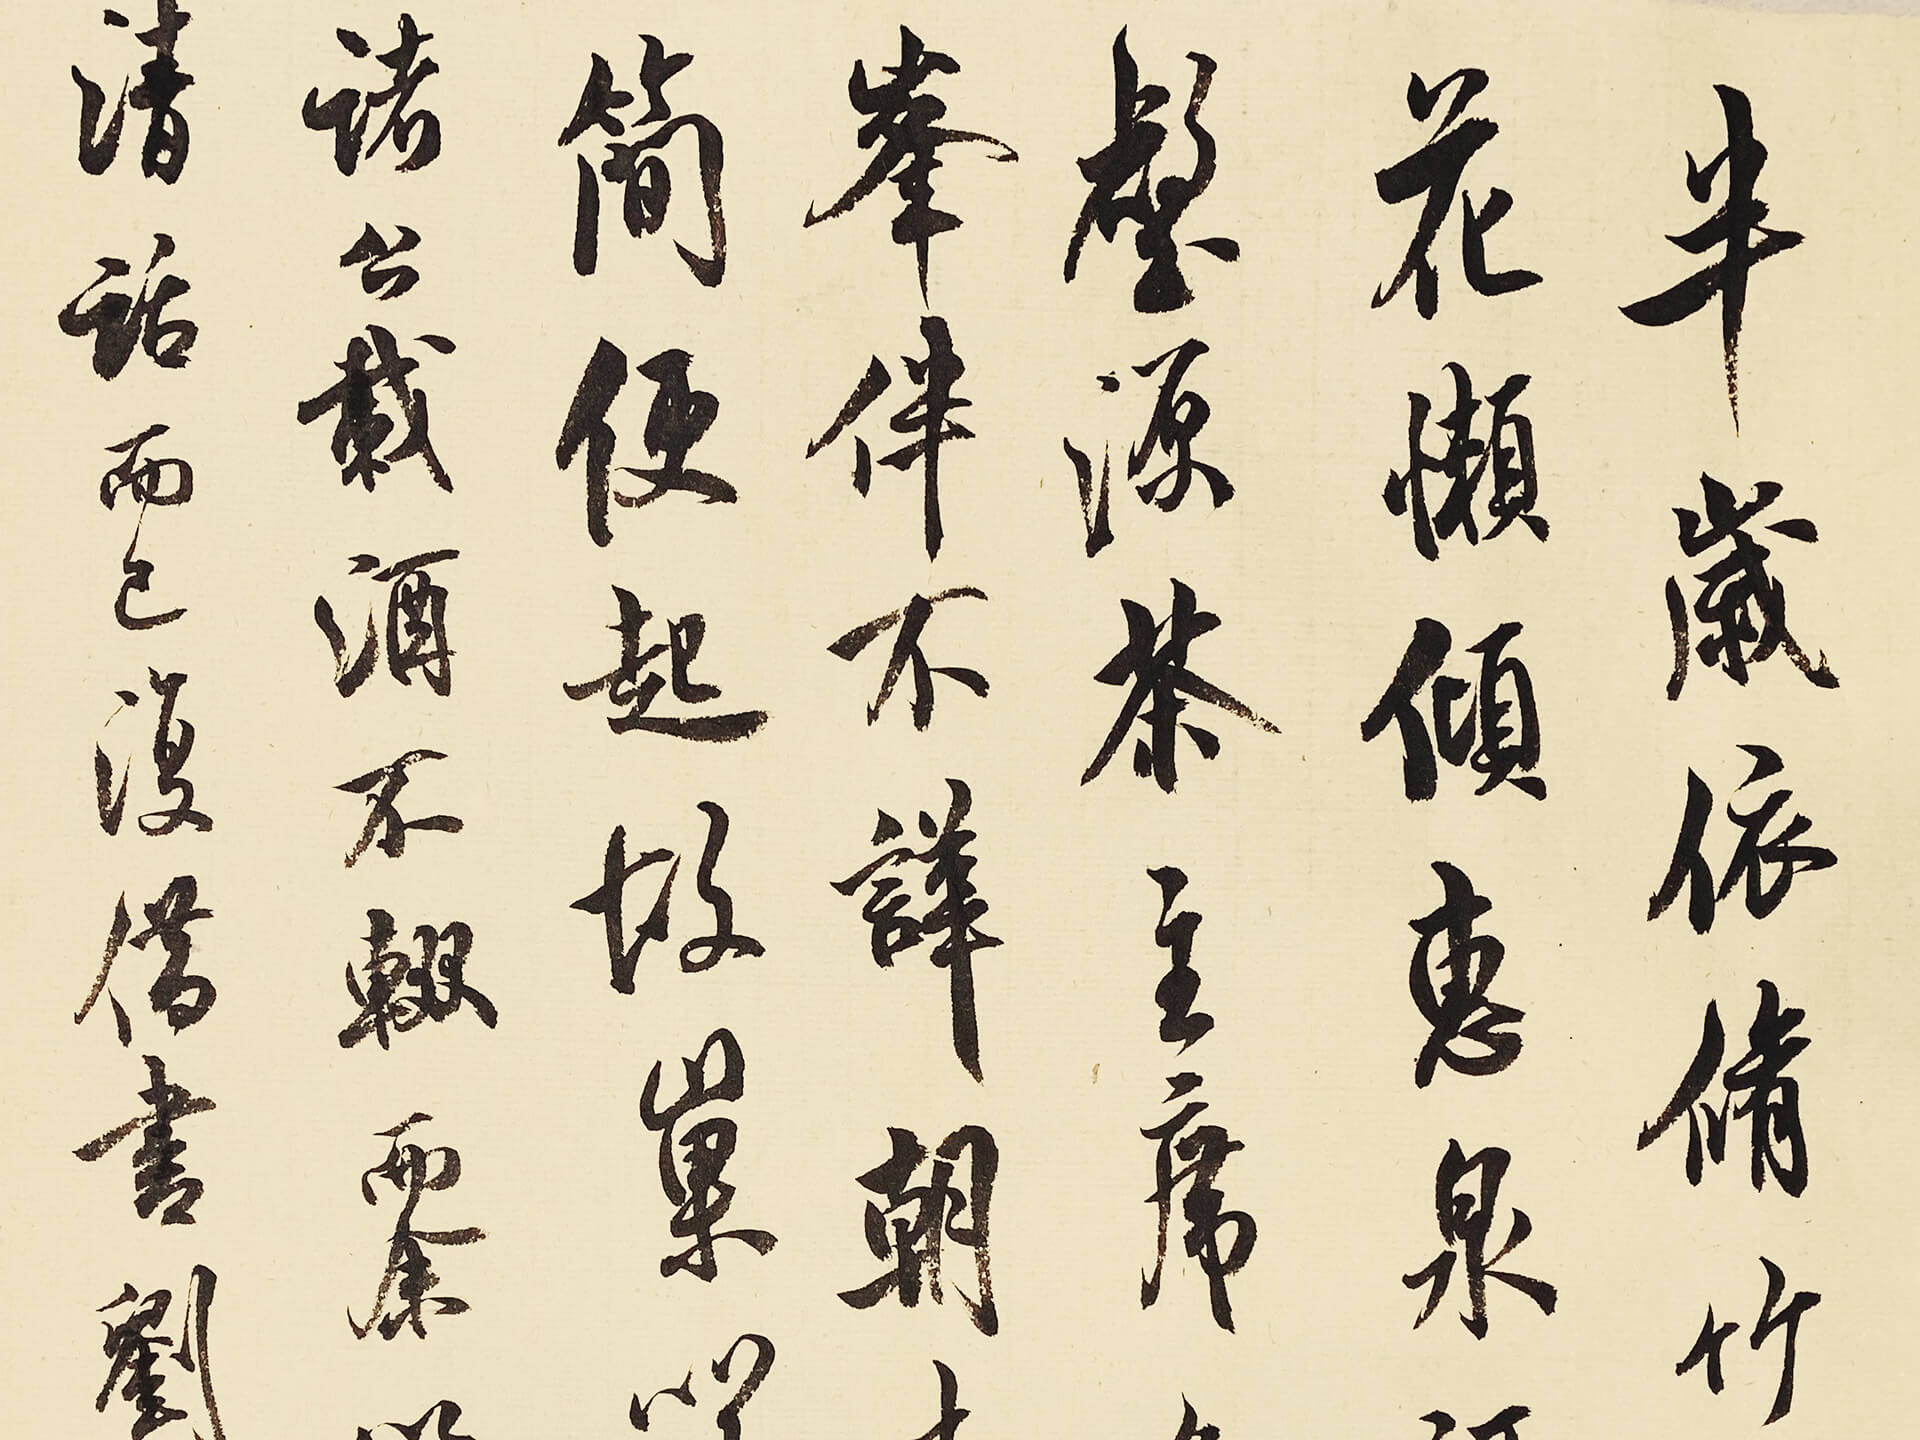 半歲依脩竹
花懶傾惠泉
壑源茶主席
峯伴不譁朝
簡便起故巢
諸公載酒不輟而余
清話而已復借書劉